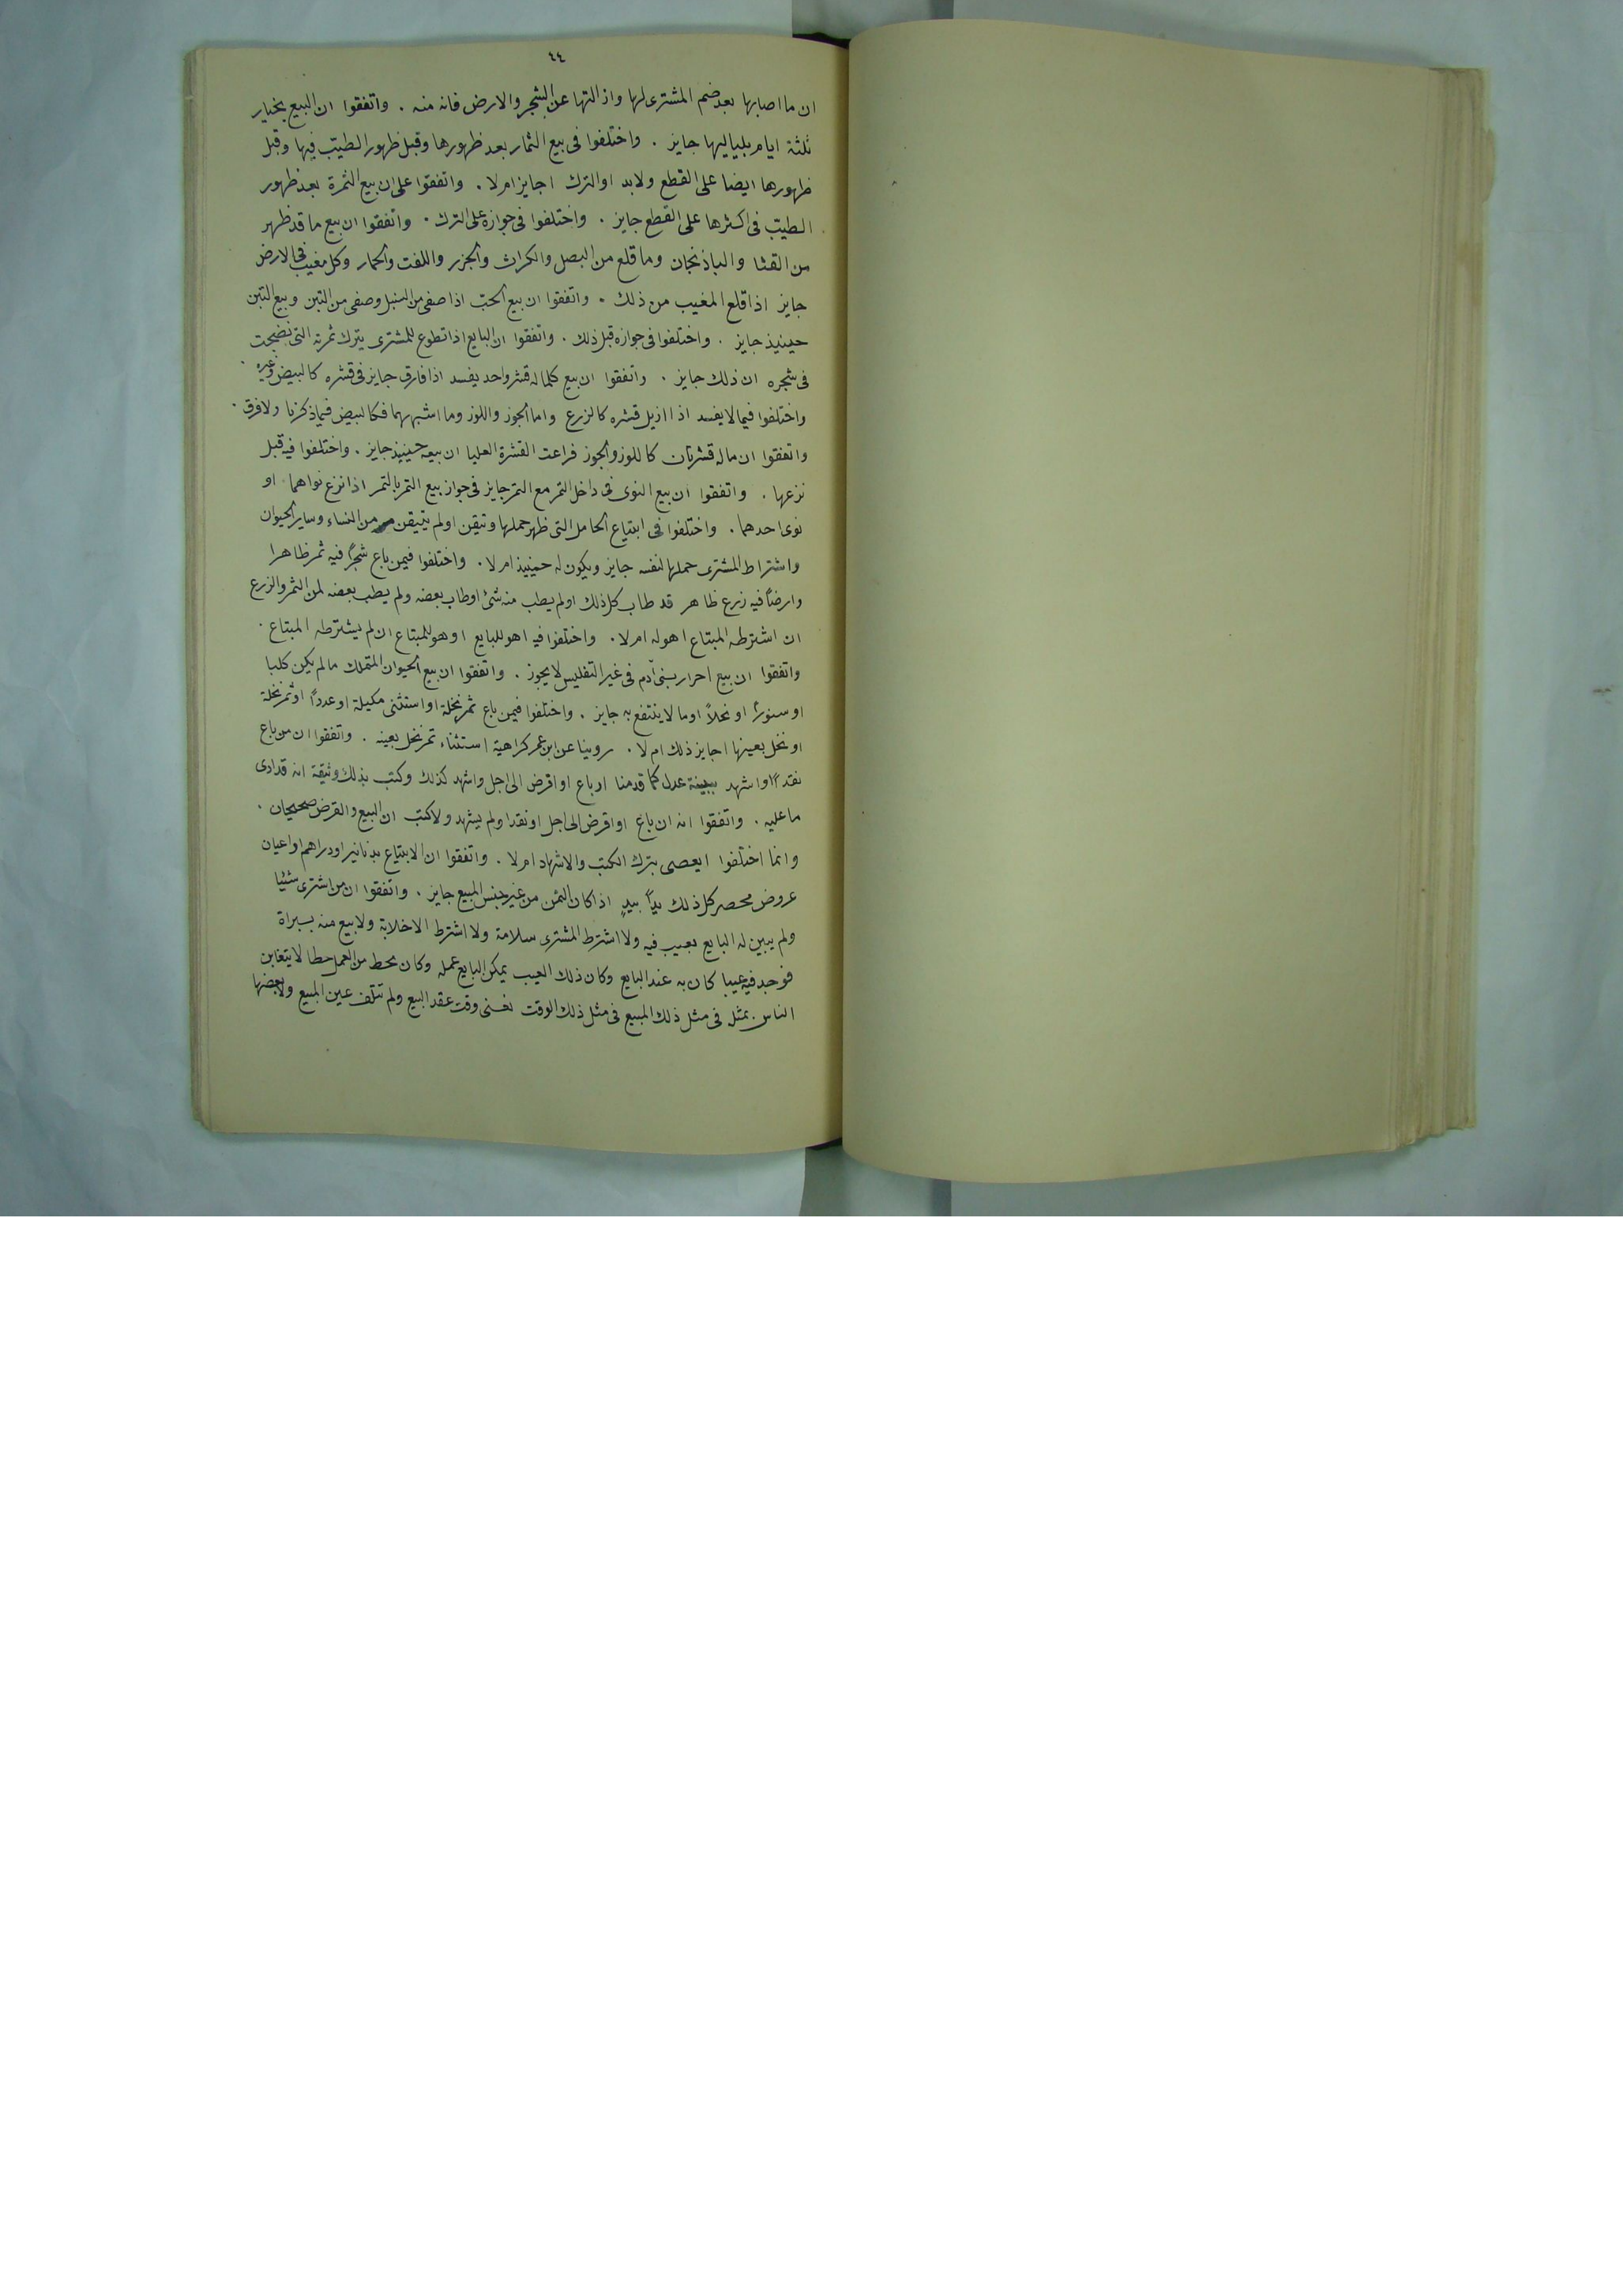 ٤٤
ان ما اصابها بعد ضم المشترى لها وازالتها عن الشجر والارض فانه منه . واتفقوا ان البيع بخيار
ثلثة ايام بلياليها جايز . واختلفوا فى بيع الثمار بعد ظهورها وقبل ظهور الطيب فيها وقبل
ظهورها ايضا على القطع ولابد او الترك اجايز ام لا . واتفقوا على ان بيع الثمرة بعد ظهور
الطيب فى اكثرها على القطع جايز . واختلفوا فى جوازه على الترك . واتفقوا ان بيع ما قد ظهر
من القثا والباذنجان وما قلع من البصل والكراث والجزر واللفت والجمار وكل مغيب فى الارض
جايز اذا قلع المغيب من ذلك . واتفقوا ان بيع الحب اذا صفى من السنبل وصفى من التبن وبيع التبن
حينيذ جايز . واختلفوا فى جوازه قبل ذلك . واتفقوا ان البايع اذا تطوع للمشترى بترك ثمرته التى نضجت
فى شجره ان ذلك جايز . واتفقوا ان بيع كلما له قشر واحد يفسد اذا فارق جايز فى قشره كالبيض وغيره .
واختلفوا فيما لا يفسد اذا ازيل قشره كالزرع واما الجوز واللوز وما اشبههما فكالبيض فيما ذكرنا ولا فرق .
واتفقوا ان ماله قشرتان كاللوز والجوز فزاعت القشرة العليا ان بيعه حينيذ جايز . واختلفوا فيه قبل
نزعها . واتفقوا ان بيع النوى فى داخل التمر مع التمر جايز فى جواز بيع التمر بالتمر اذا نزع نواهما او
نوى احدهما . واختلفوا فى ابتياع الحامل التى ظهر حملها وتيقن اولم يتيقن من النساء وساير الحيوان
واشتراط المشترى حملها لنفسه جايز ويكون له حينيذ ام لا . واختلفوا فيمن باع شجرًا فيه ثمر ظاهرا
وارضًا فيه زرع ظاهر قد طاب كل ذلك اولم يطب منه شئ اوطاب بعضه ولم يطب بعضه لمن الثمر والزرع
ان اشترطه المبتاع اهوله ام لا . واختلفوا فيه اهو للبايع او هو للمبتاع ان لم يشترطه المبتاع .
واتفقوا ان بيع احرار بنى آدم فى غير التفليس لا يجوز . واتفقوا ان بيع الحيوان المتملك مالم يكن كلبا
او سنورًا او نحلاً او ما لا ينتفع به جايز . واختلفوا فيمن باع ثمر نخلة او استثنى مكيلة او عددًا او ثمر نخلة
او نخل بعينها اجايز ذلك ام لا . روينا عن ابن عمر كراهية استثناء تمر نخل بعينه . واتفقوا ان من باع
نقدًا واشهد ببينة عدل كما قدمنا او باع او اقرض الى اجل واشهد كذلك وكتب بذلك وثيقة انه قد ادى
ما عليه . واتفقوا انه ان باع او اقرض الى اجل او نقدا ولم يشهد ولا كتب ان البيع والقرض صحيحان .
وانما اختلفوا ايعصى بترك الكتب والاشهاد ام لا . واتفقوا ان الابتياع بدنانير او دراهم او اعيان
عروض محصر كل ذلك يدًا بيدٍ اذا كان الثمن من غير جنس المبيع جايز . واتفقوا ان من اشترى شئيا
ولم يبين له البايع بعيب فيه ولا اشترط المشترى سلامة ولا اشترط الاخلابة ولا بيع منه ببراة
فوجد فيه عيبا كان به عند البايع وكان ذلك العيب يمكن البايع عمله وكان يحط من العمل حطا لا يتغابن
الناس بمثل فى مثل ذلك المبيع فى مثل ذلك الوقت نعنى وقت عقد البيع ولم تتلف عين المبيع ولا بعضها